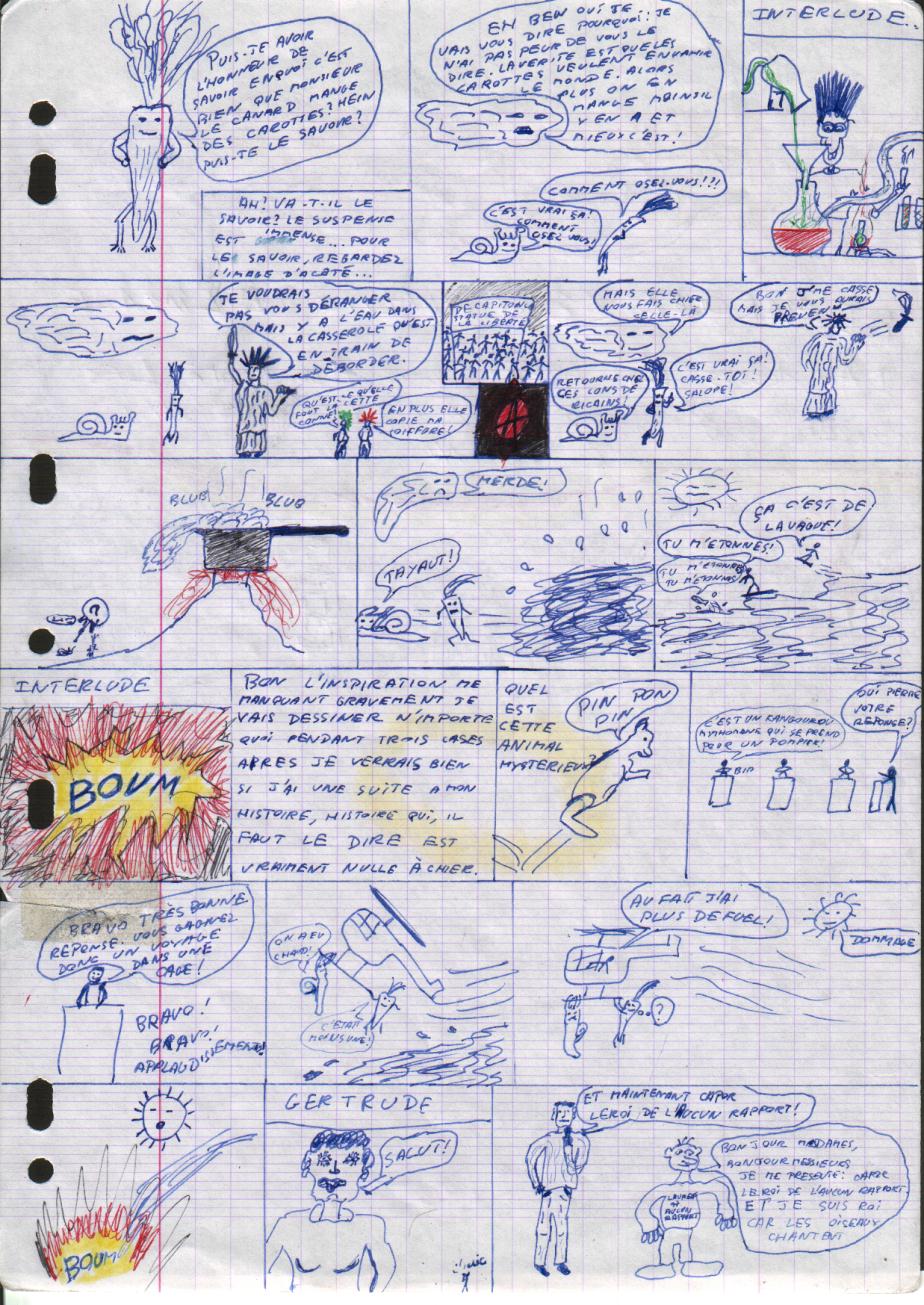 PUIS-JE AVOIR
L'HONNEUR DE
SAVOIR ENQUOI C'EST
BIEN QUE MONSIEUR
LE CANARD MANGE
DES CAROTTES? HEIN
PUIS-JE LE SAVOIR?
AH! VA-T-IL LE
SAVOIR? LE SUSPENSE
EST IMMENSE... POUR
LE SAVOIR, REGARDEZ
L'IMAGE D'A CÔTÉ...
EH BEN OUI JE
VAIS VOUS DIRE POURQUOI: JE
N'AI PAS PEUR DE VOUS LE
DIRE. LA VERITE EST QUE LES
CAROTTES VEULENT ENVAHIR
LE MONDE. ALORS
PLUS ON EN
MANGE MOINS IL
Y EN A ET
MIEUX C'EST!
COMMENT OSEZ-VOUS!?!
C'EST VRAI ÇA!
COMMENT
OSEZ VOUS!
INTERLUDE.
JE VOUDRAIS
PAS VOUS DÉRANGER
MAIS Y A L'EAU DANS
LA CASSEROLE QU'EST
EN TRAIN DE
DÉBORDER.
QU'EST-CE QU'ELLE
FOUT LA CETTE
CONNE!
EN PLUS ELLE
COPIE MA
COIFFURE!
DECAPITON LA
STATUE DE
LA LIBERTÉ!
A
MAIS ELLE
NOUS FAIS CHIER
CELLE-LÀ
RETOURNE CHEZ
CES CONS DE
RICAINS!
C'EST VRAI ÇA!
CASSE-TOI!
SALOPE!
BON J'ME CASSE
MAIS JE VOUS AURAIS
PREVENU
BLUB
BLUB
MERDE!
TAYAUT!
ÇA C'EST DE
LA VAGUE!
TU M'ETONNES!
TU M'ETONNES
TU M'ETONNES
INTERLUDE
BOUM
BON L'INSPIRATION ME
MANQUANT GRAVEMENT JE
VAIS DESSINER N'IMPORTE
QUOI PENDANT TROIS CASES
APRES JE VERRAIS BIEN
SI J'AI UNE SUITE A MON
HISTOIRE, HISTOIRE QUI, IL
FAUT LE DIRE EST
VRAIMENT NULLE À CHIER.
QUEL
EST
CETTE
ANIMAL
MYSTERIEUX?
PIN PON
PIN
C'EST UN KANGOUROU
MYHOMANE QUI SE PREND
POUR UN POMPIER!
OUI PIERRE
VOTRE
REPONSE?
BIP
BRAVO TRÈS BONNE
REPONSE. VOUS GAGNEZ
DONC UN VOYAGE
DANS UNE
CAGE!
BRAVO!
BRAVO!
APPLAUDISSEMENT!
ON A EU
CHAUD!
C'ETAIT
MOINS UNE!
AU FAIT J'AI
PLUS DE FUEL!
?
DOMMAGE
BOUM
GERTRUDE
SALUT!
ET MAINTENANT CAPOR
LE ROI DE L'AUCUN RAPPORT!
BONJOUR MADAMES,
BONJOUR MESSIEURS
JE ME PRESENTE: CAPOR
LE ROI DE L'AUCUN RAPPORT
ET JE SUIS ROI
CAR LES OISEAUX
CHANTENT
AUCUN
RAPPORT